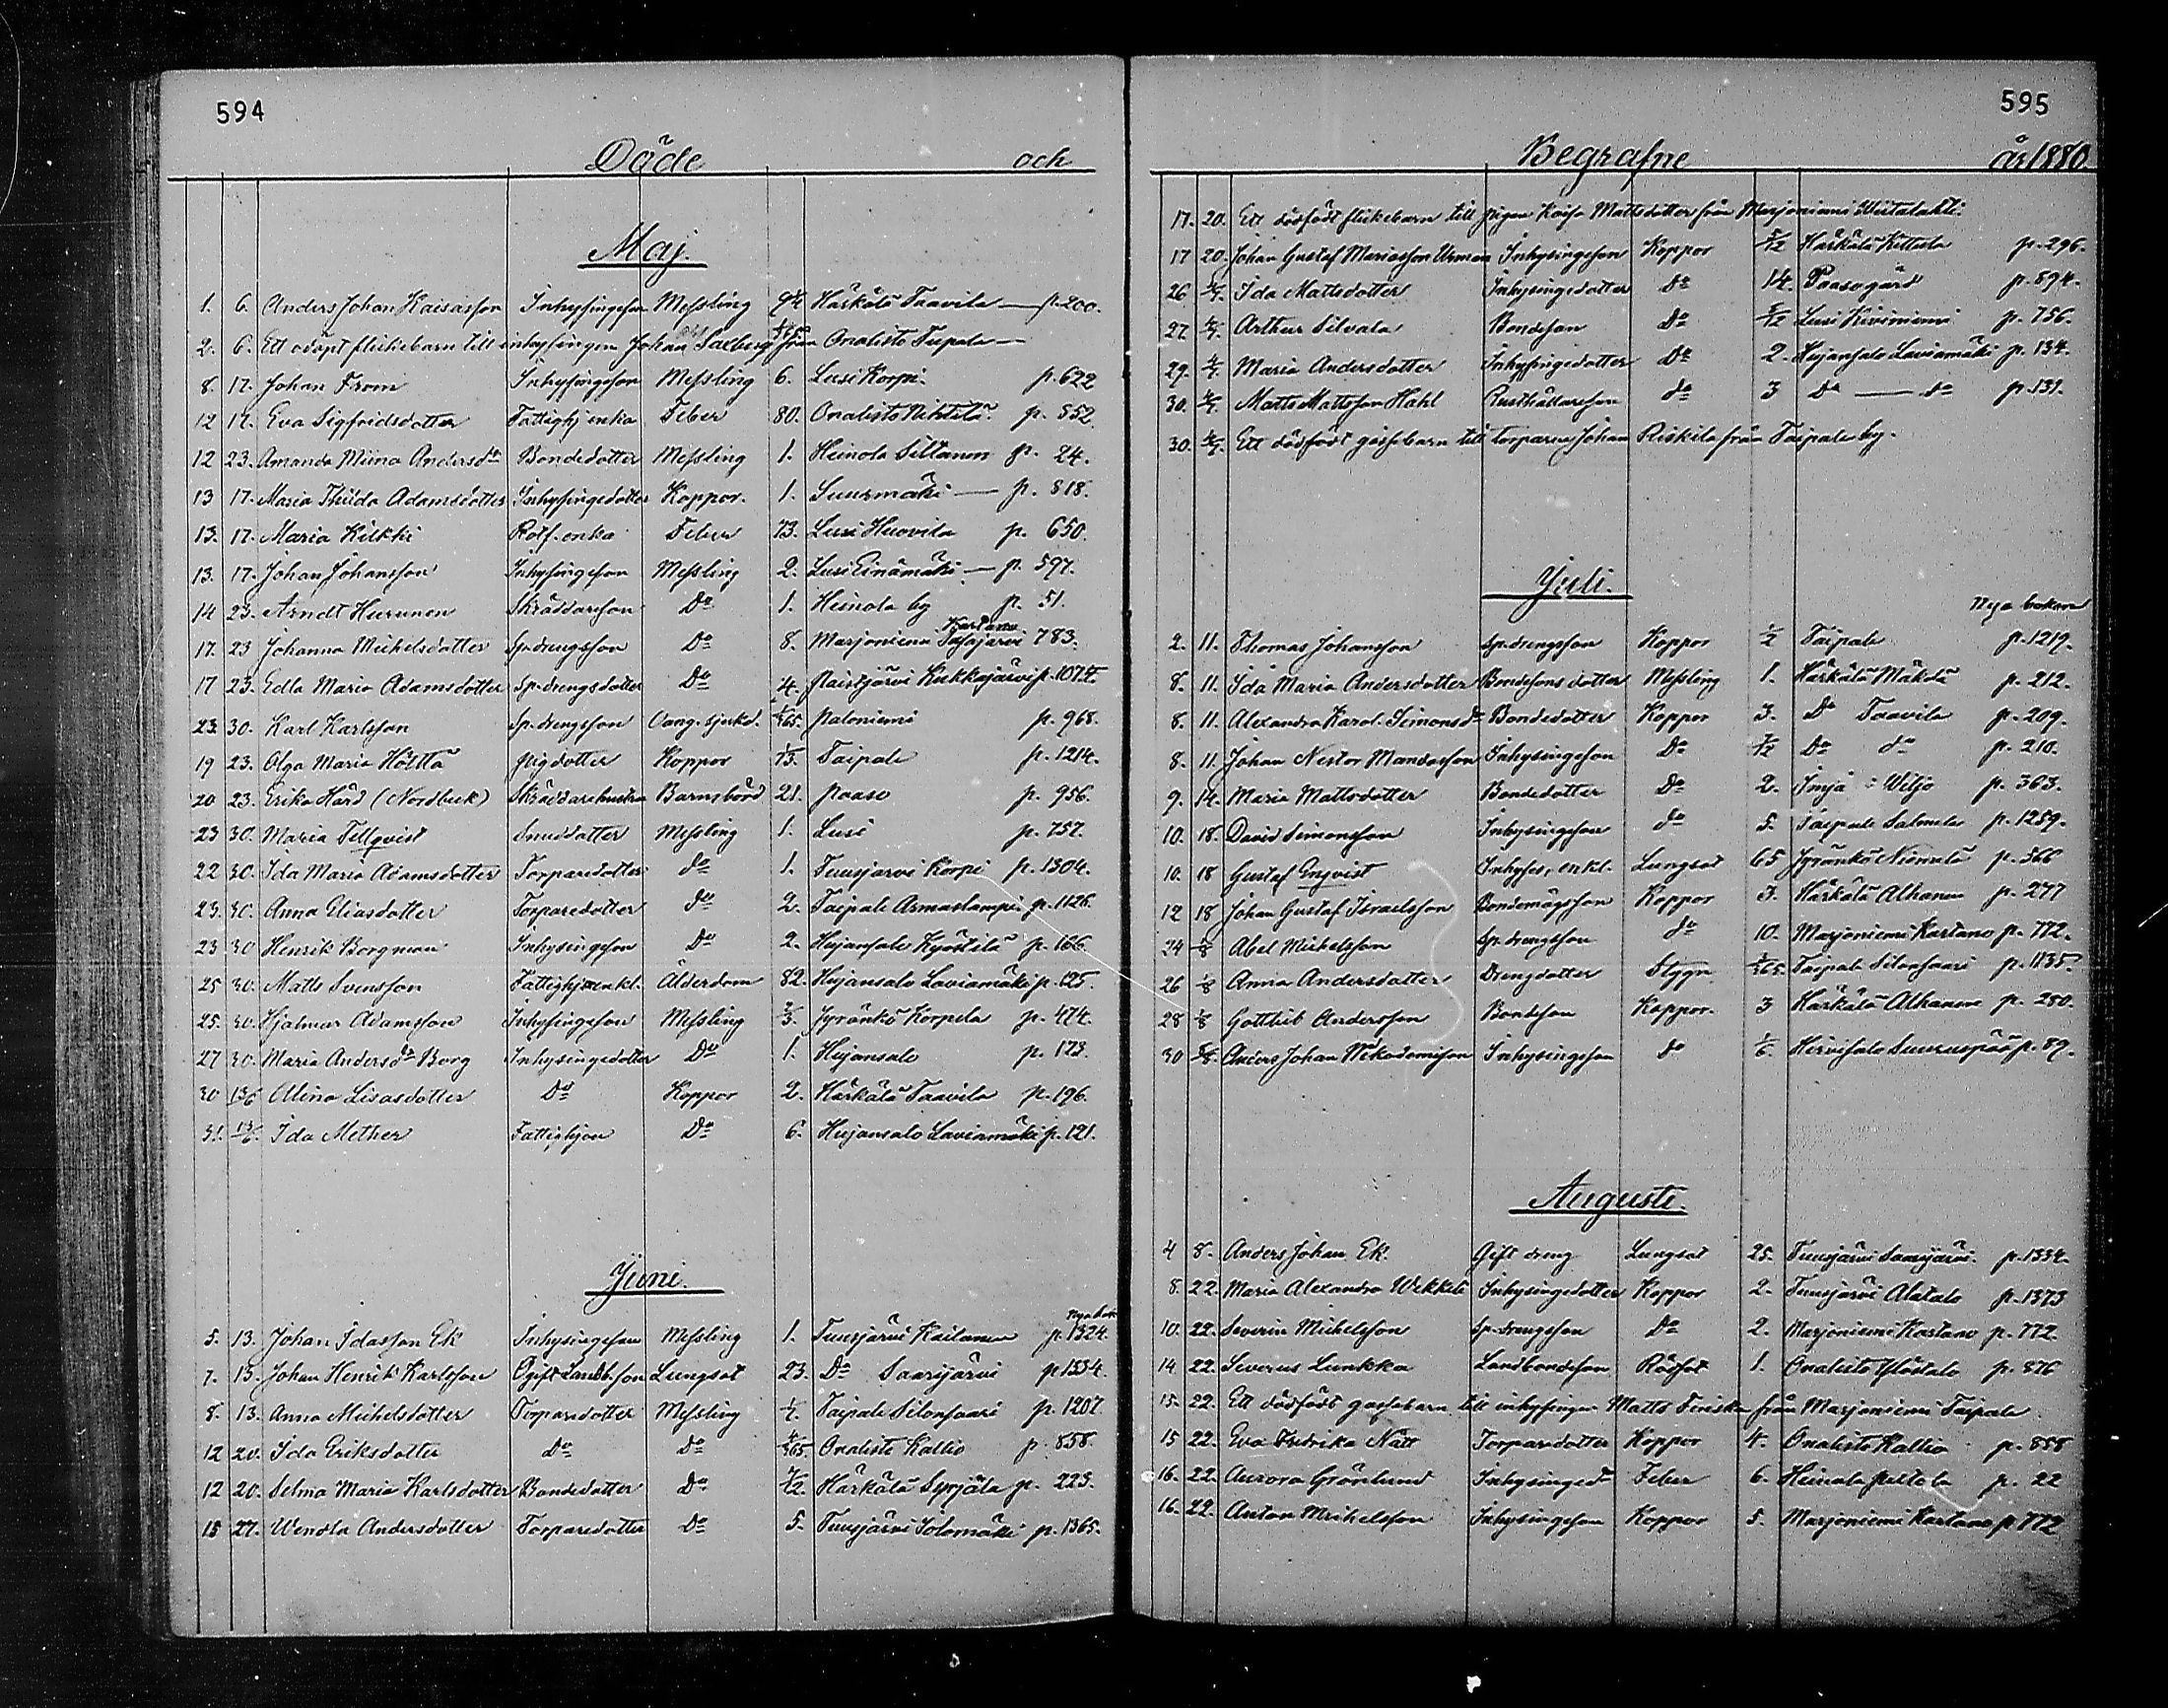 594
Döde och
Maj.
1. 6. Anders Johan Kaisasson Inhysingeson Messling Härkälä Taavila — p. 200.
2. 6. Ett odöpt flickebarn till inhysingen Johan Saxberg från Onalisto Tiepala —
8. 17. Johan From Inhysingeson Messling 6. Lusi Korpi. p. 622
12 17. Eva Sigfridsdotter Fattighj enka Feber 80. Onalisto Nihtilä p. 852.
12 23. Amanda Miina Andersdr Bondedotter Messling 1. Heinola Siltanen p. 24.
13 17. Maria Thilda Adamsdotter Inhysingedotter Koppor. 1. Suurmäki — p. 818.
13. 17. Maria Kilkki Rotf. enka Feber 73. Lusi Huovila p. 650.
13. 17. Johan Johansson Inhysingeson Messling 2. Lusi Einämäki — p. 597.
14 23. Arndt Hurunen Skräddareson Do 1. Heinola by p. 51.
17. 23 Johanna Michelsdotter Sp. drengsson Do 8. Marjoniemi Kartano 783.
17 23. Edla Maria Adamsdotter Sp. drengsdotter Do 4. Paistjärvi Kukkajärvi p. 1074.
23. 30. Karl Karlsson Sp. drengsson Oang. sjukd. 1/365. Paloniemi p. 968.
19 23. Olga Maria Hölttä pigdotter Koppor 1/3. Taipale p. 1214.
20 23. Erika Hård (Nordbeck) Skräddarehustru Barnsbörd 21. Paaso p. 956.
23 30. Maria Tellqvist Smeddotter Messling 1. Lusi p. 757.
22 30. Ida Maria Adamsdotter Torparedotter do 1. Tuusjärvi Korpi p. 1304.
23. 30. Anna Eliasdotter Torparedotter do 2. Taipale Armaslampi p. 1126.
23 30 Henrik Borgman Inhysingeson Do 2. Hujansalo Kyöstilä p. 166.
25 30. Matts Svensson Fattighj enkl. Ålderdom 82. Hujansalo Laviamäki p. 125.
25. 30. Hjalmar Adamsson Inhysingeson Messling 2/3. Jyränkö Korpela p. 474.
27 30. Maria Andersdr Borg Inhysingedotter Do 1. Hujansalo p. 173.
30 13/6 Miina Lisasdotter Do Koppor 2. Härkälä Taavila p. 196.
31. 13/6. Ida Mether Fattighjon Do 6. Hujansalo Laviamäki p. 121.
Juni.
5. 13. Johan Idasson Ek Inhysingeson Messling 1. Tuusjärvi Kailanen p. 1324.
7. 13. Johan Henrik Karlsson Ogift Landb. son Lungsot 23. Do Saarijärvi p 1334.
8. 13. Anna Michelsdotter Torparedotter Messling Taipale Silonsaari p. 1207.
12 20. Ida Eriksdotter Do Do Onalisto Kallio p. 858.
12 20. Selma Maria Karlsdotter Bondedotter Do Härkälä Syrjälä p. 223.
15 27. Wendla Andersdotter Torparedotter Do 5. Tuusjärvi Solomäki p. 1365.
595
Begrafne år 1880.
17. 20. Ett dödfödt flickebarn till pigan Kaisa Mattsdotter från Marjoniemi Wiitalahti.
17 20. Johan Gustaf Mariasson Urman Inhysingeson Koppor Härkälä Kittula p. 296.
26 4/7. Ida Mattsdotter Inhysingedotter Do 14. Paasogård p. 894.
27. 4/7. Arthur Silvala Bondeson Do Lusi Kiviniemi p. 756.
29. 4/7. Maria Andersdotter Inhysingedotter Do 2. Hujansalo Laviamäki p. 134.
30. 4/7. Matts Mattsson Hahl Rusthållareson do 3 Do — do p. 131.
30. 4/7. Ett dödfödt gossebarn till torparen Johan Riskila från Taipale by.
Juli.
Nya boken
2. 11. Thomas Johansson Sp. drengsson Koppor 1/2 Taipale p. 1219.
8. 11. Ida Maria Andersdotter Bondesons dotter Messling 1. Härkälä Mäkelä p. 212.
8. 11. Alexandra Karol. Simonsdr Bondedotter Koppor 3. Do Taavila p. 209.
8. 11. Johan Nestor Mandasson Inhysingeson Do Do do p. 210.
9. 14. Maria Mattsdotter Bondedotter Do 2. Imjä Wiljo p. 363.
10. 18. David Simonsson Inhysingeson do 5. Taipale Salmela p. 1259.
10. 18 Gustaf Enqvist Inhyses, enkl. Lungsot 65 Jyränkö Niemelä p. 566
12 18 Johan Gustaf Israelsson Bondemågsson Koppor 3. Härkälä Alhanen p. 277
24 1/8 Abel Michelsson Sp. drengsson do 10. Marjoniemi Kartano p. 772.
26 1/8 Anna Andersdotter Drengdotter Slygn Taipale Silonsaari p. 1135.
28 1/8 Gottlieb Andersson Bondeson Koppor. 3 Härkälä Alhanen p. 280.
30 Anders Johan Nikodemisson Inhysingeson do 1/6. Hirvisalo Suurenpää p. 89.
Augusti.
4 8. Anders Johan Ek Gift dreng Lungsot 25. Tuusjärvi Saarijärvi p. 1334.
8. 22. Maria Alexandra Wekkeli Inhysingedotter Koppor 2. Tuusjärvi Alatalo p. 1373
10. 22. Severin Michelsson Sp. drengsson Do 2. Marjoniemi Kartano p. 772.
14 22. Severus Lunkka Landbondeson Rödsot 1. Onalisto Ylöstalo p. 876
15. 22. Ett dödfödt gossebarn till inhysingen Matts Finiska från Marjoniemi Taipale
15 22. Eva Fredrika Nätt Torparedotter Koppor 4. Onalisto Kallio p. 858
16. 22. Aurora Grönlund Inhysingedr Feber 6. Heinola Pietola p. 22
16. 22. Anton Michelsson Inhysingeson Koppor 5. Marjoniemi Kartano p 772